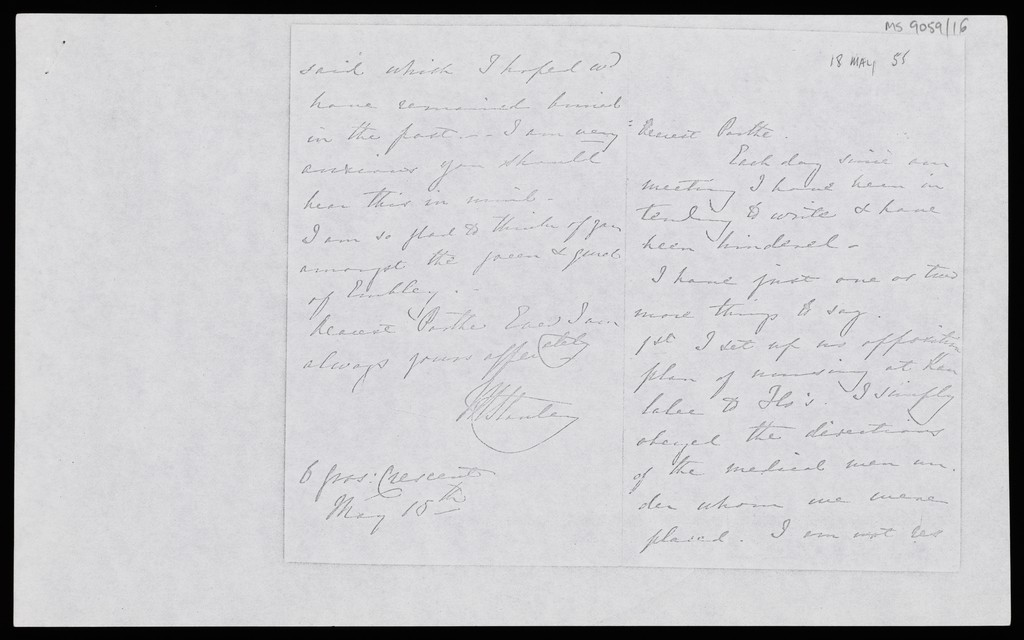 MS 9059/16
18 MAY 56
Dearest Parthe.
Each day since our
meeting I have been in
tending to write & have
been hindered -
I have just one or two
more things to say.
1st I set up no opposition
plan of nursing at Kou
lalee to Flo's. I simply
obeyed the directions
of the medical men un.
der whom we were
placed. I am not res
said which I hoped wd
have remained buried
in the past -- I am very
anxious you should
bear this in mind -
I am so glad to think of you
amongst the green & quiet
of Embley. -
Dearest Parthe Ever I am
always yours affectately
MStanley
6 Gros: Crescent
May 18th